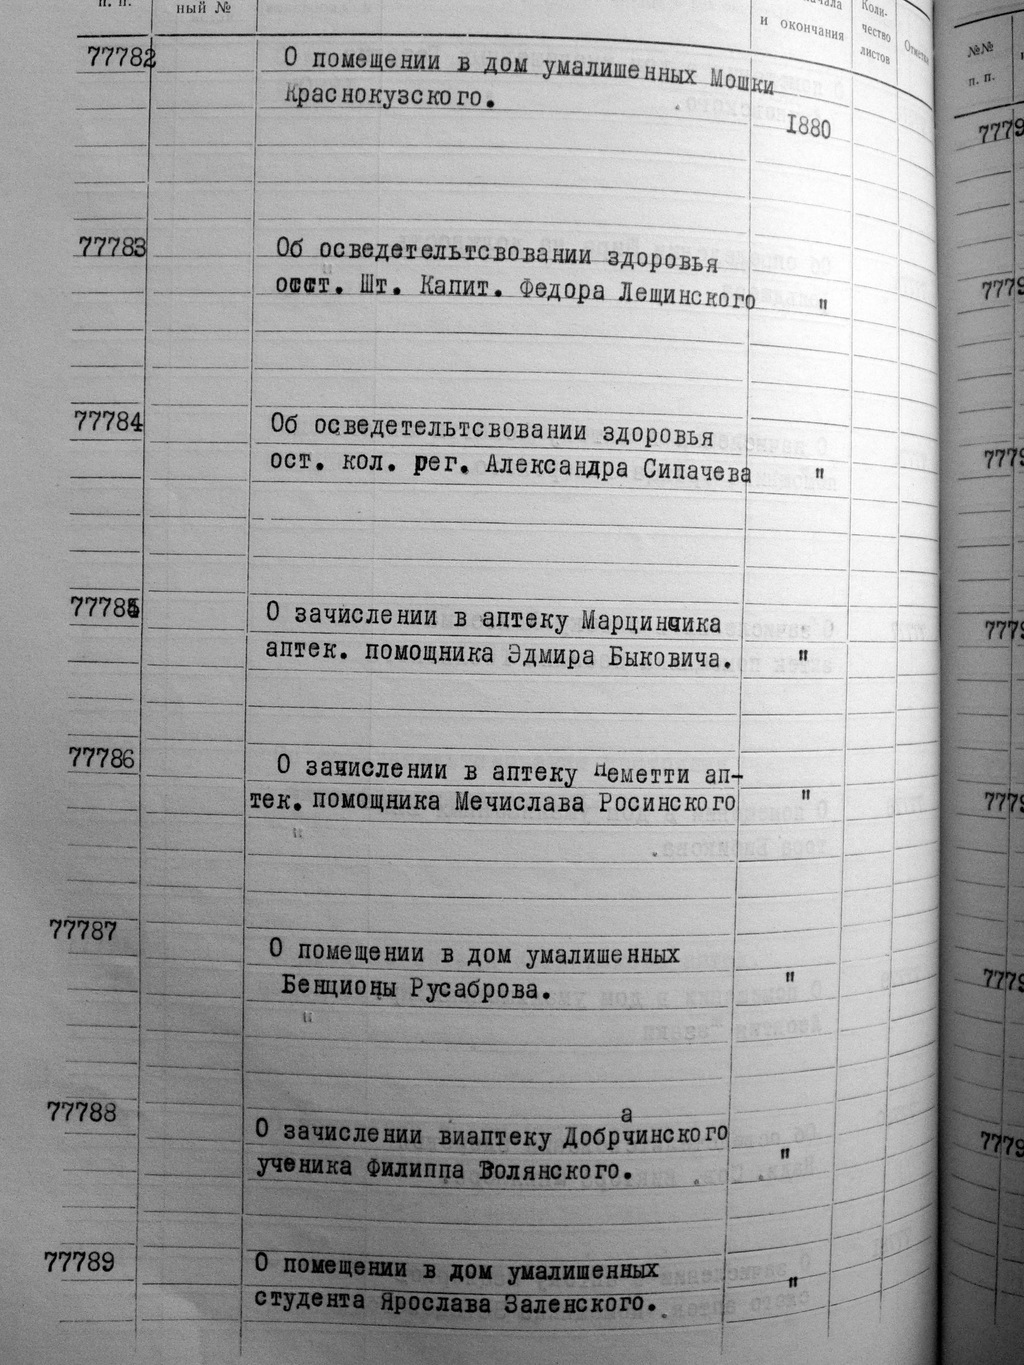 п. п.
ный №
и окончания
Коли-
чество
листов
77782
О помещении в дом умалишенных Мошки
Краснокузского.
1880
77783
Об осведетельтсвовании здоровья
Шт. Капит. Федора Лещинского "
77784
Об осведетельтсвовании здоровья
ост. кол. рег. Александра Сипачева "
77785
О зачислении в аптеку Марцинчика
аптек. помощника Эдмира Быковича. "
77786
О зачислении в аптеку Неметти ап-
тек. помощника Мечислава Росинского "
77787
О помещении в дом умалишенных
Бенционы Русаброва. "
77788
а
О зачислении виаптеку Добрчинского
ученика Филиппа Волянского. "
77789
О помещении в дом умалишенных
студента Ярослава Заленского. "
№№
п. п.